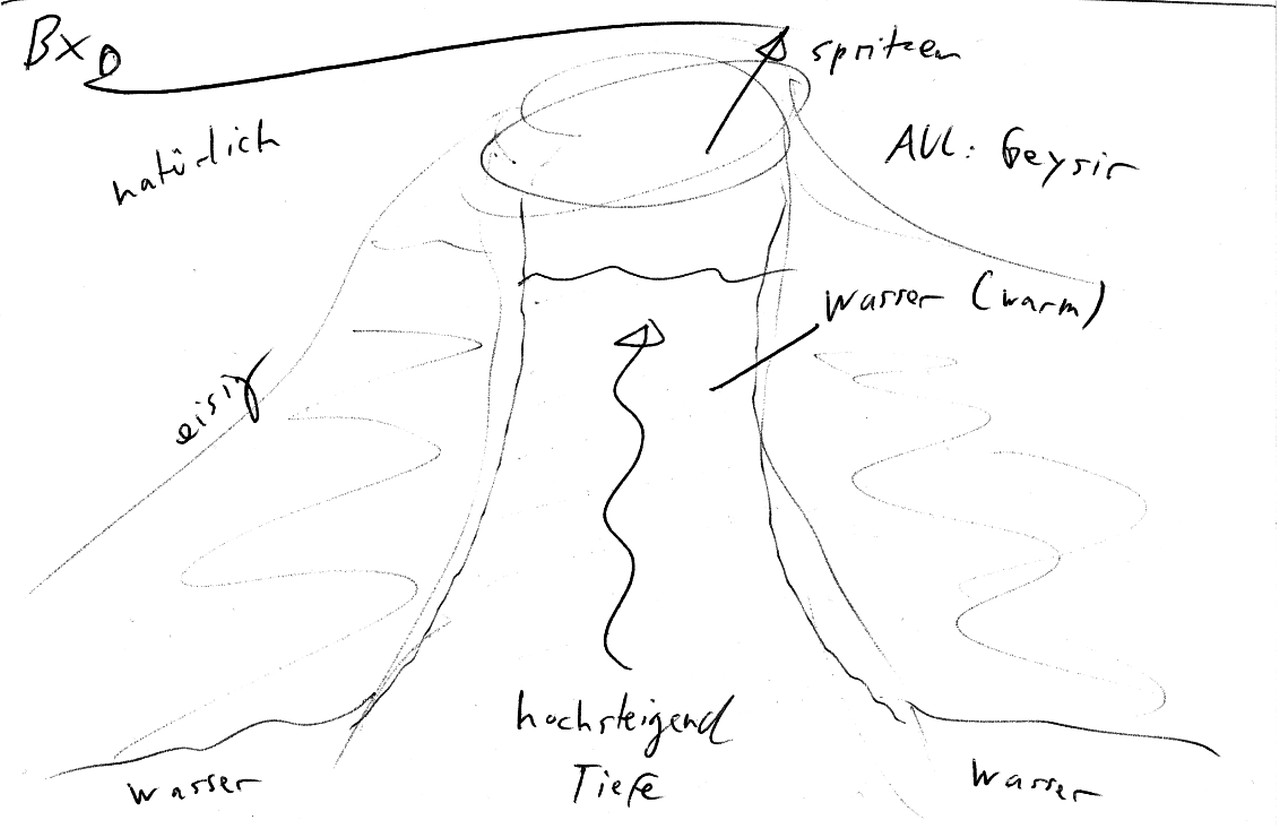 Bx
spritzen
natürlich
AUL: Geysir
Wasser (warm)
eisig
hochsteigend
Tiefe
Wasser
Wasser